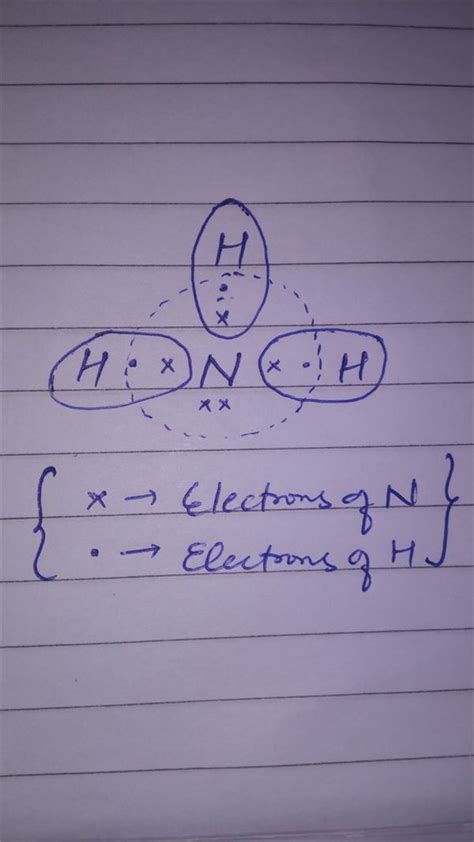 H
•
x
H • x N x • H
x x
{ x → Electrons of N }
{ • → Electrons of H }